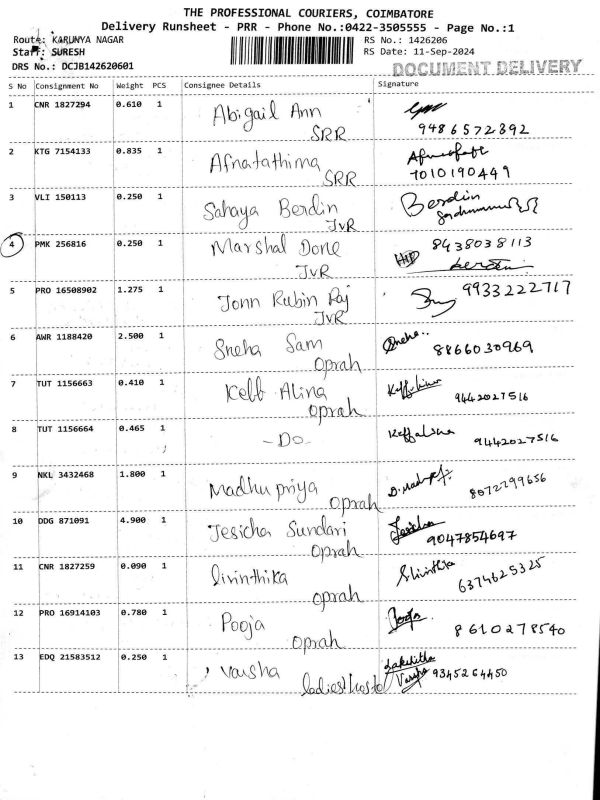 THE PROFESSIONAL COURIERS, COIMBATORE
Delivery Runsheet - PRR - Phone No.:0422-3505555 - Page No.:1
Route: KARUNYA NAGAR
RS No.: 1426206
Staff: SURESH
RS Date: 11-Sep-2024
DRS No.: DCJB142620601
DOCUMENT DELIVERY
S No Consignment No Weight PCS Consignee Details Signature
1 CNR 1827294 0.610 1 Abigail Ann
SRR 9486572392
2 KTG 7154133 0.835 1 Afnatathima
SRR 7010190449
3 VLI 150113 0.250 1 Sahaya Berdin Berdin
JvR
4 PMK 256816 0.250 1 Marshal Done 8438038113
JvR Berdin
5 PRO 16508902 1.275 1 Jonn Rubin Raj 9933222717
JvR
6 AWR 1188420 2.500 1 Sneha Sam Sneha..
Oprah 8866030969
7 TUT 1156663 0.410 1 Kebb Alina
Oprah 9442027516
8 TUT 1156664 0.465 1 -Do- 9442027516
9 NKL 3432468 1.800 1 Madhu priya 8072799656
Oprah
10 DDG 871091 4.900 1 Jesicha Sundari Jesicha
Oprah 9047854697
11 CNR 1827259 0.090 1 livinthika
Oprah 6374625325
12 PRO 16914103 0.780 1 Pooja Pooja
Oprah 8610278540
13 EDQ 21583512 0.250 1 Varsha Lakshitha
ladiest Varsha 9345264450